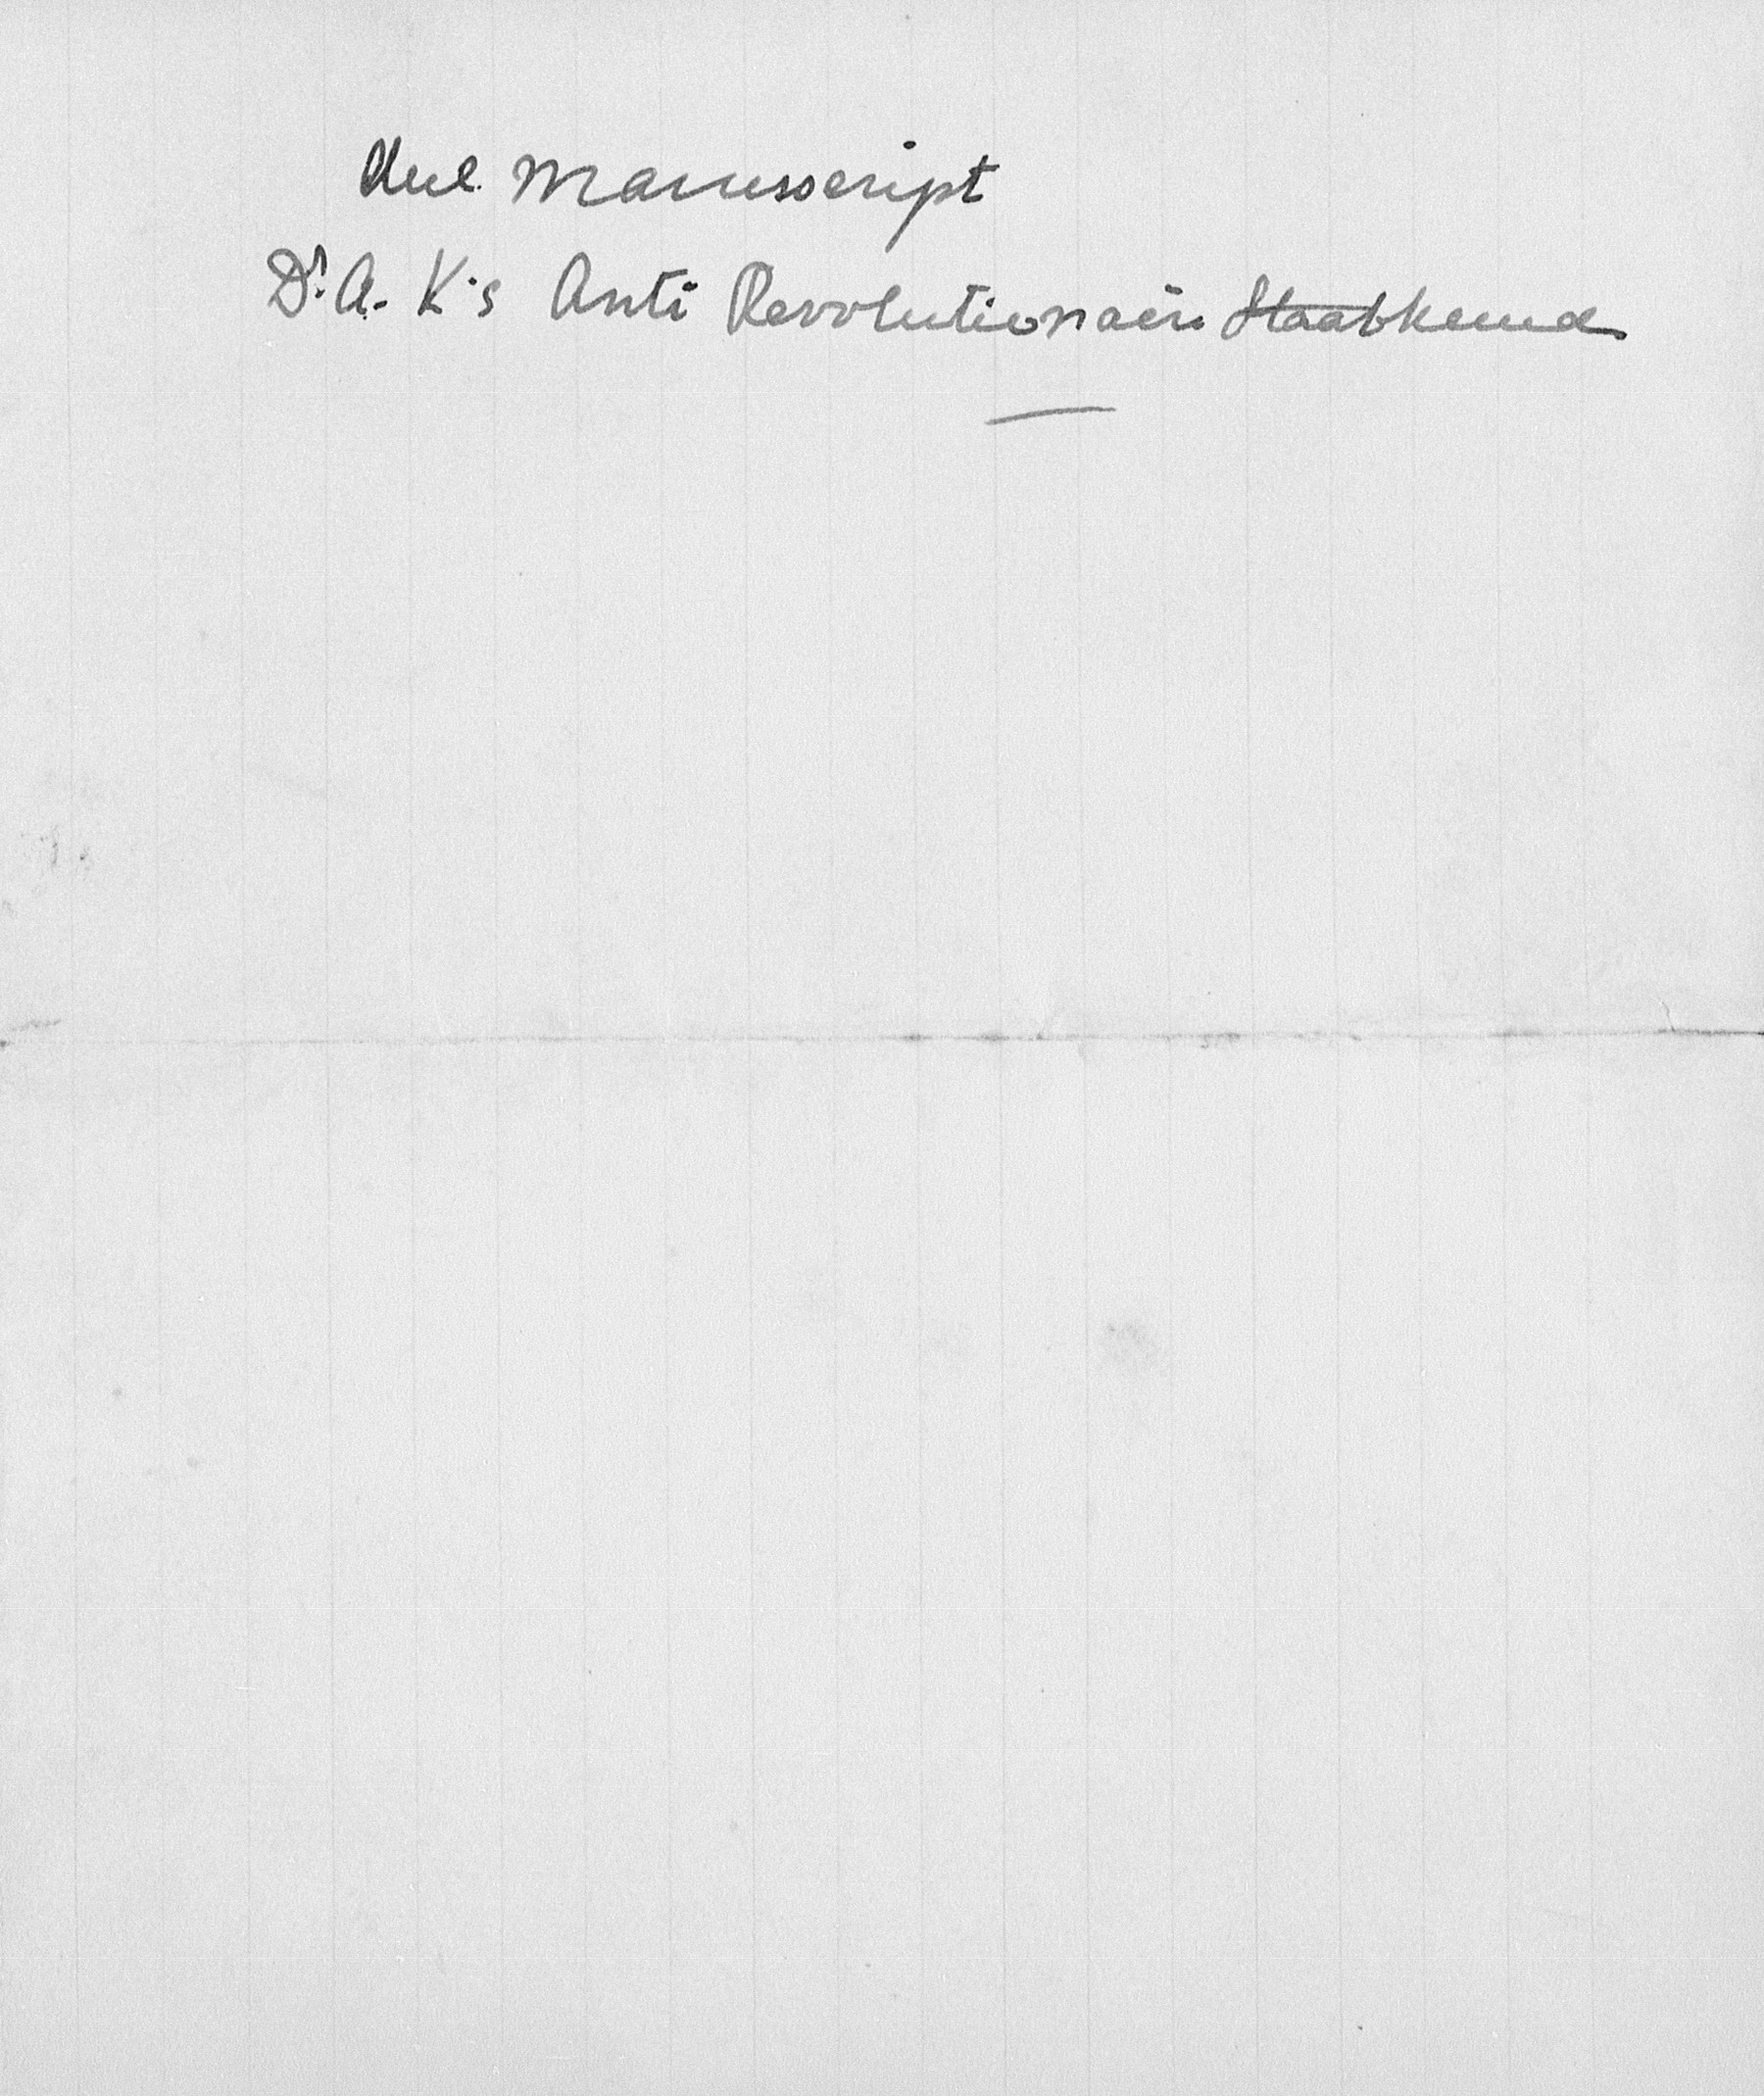 Manuscript
Dr. A. K's Anti Revolutionair Staatkunde